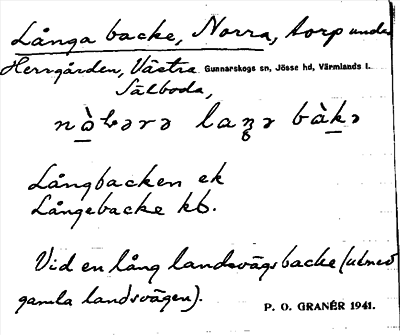 Långa backe, Norra, torp under
Herrgården, Västra Gunnarskogs sn, Jösse hd, Värmlands l.
Sälboda,
nò̱bərə laŋə bàk̠ə
Långbacken ek
Långebacke kb.
Vid en lång landsvägsbacke (utmed
gamla landsvägen).
P. O. GRANÉR 1941.